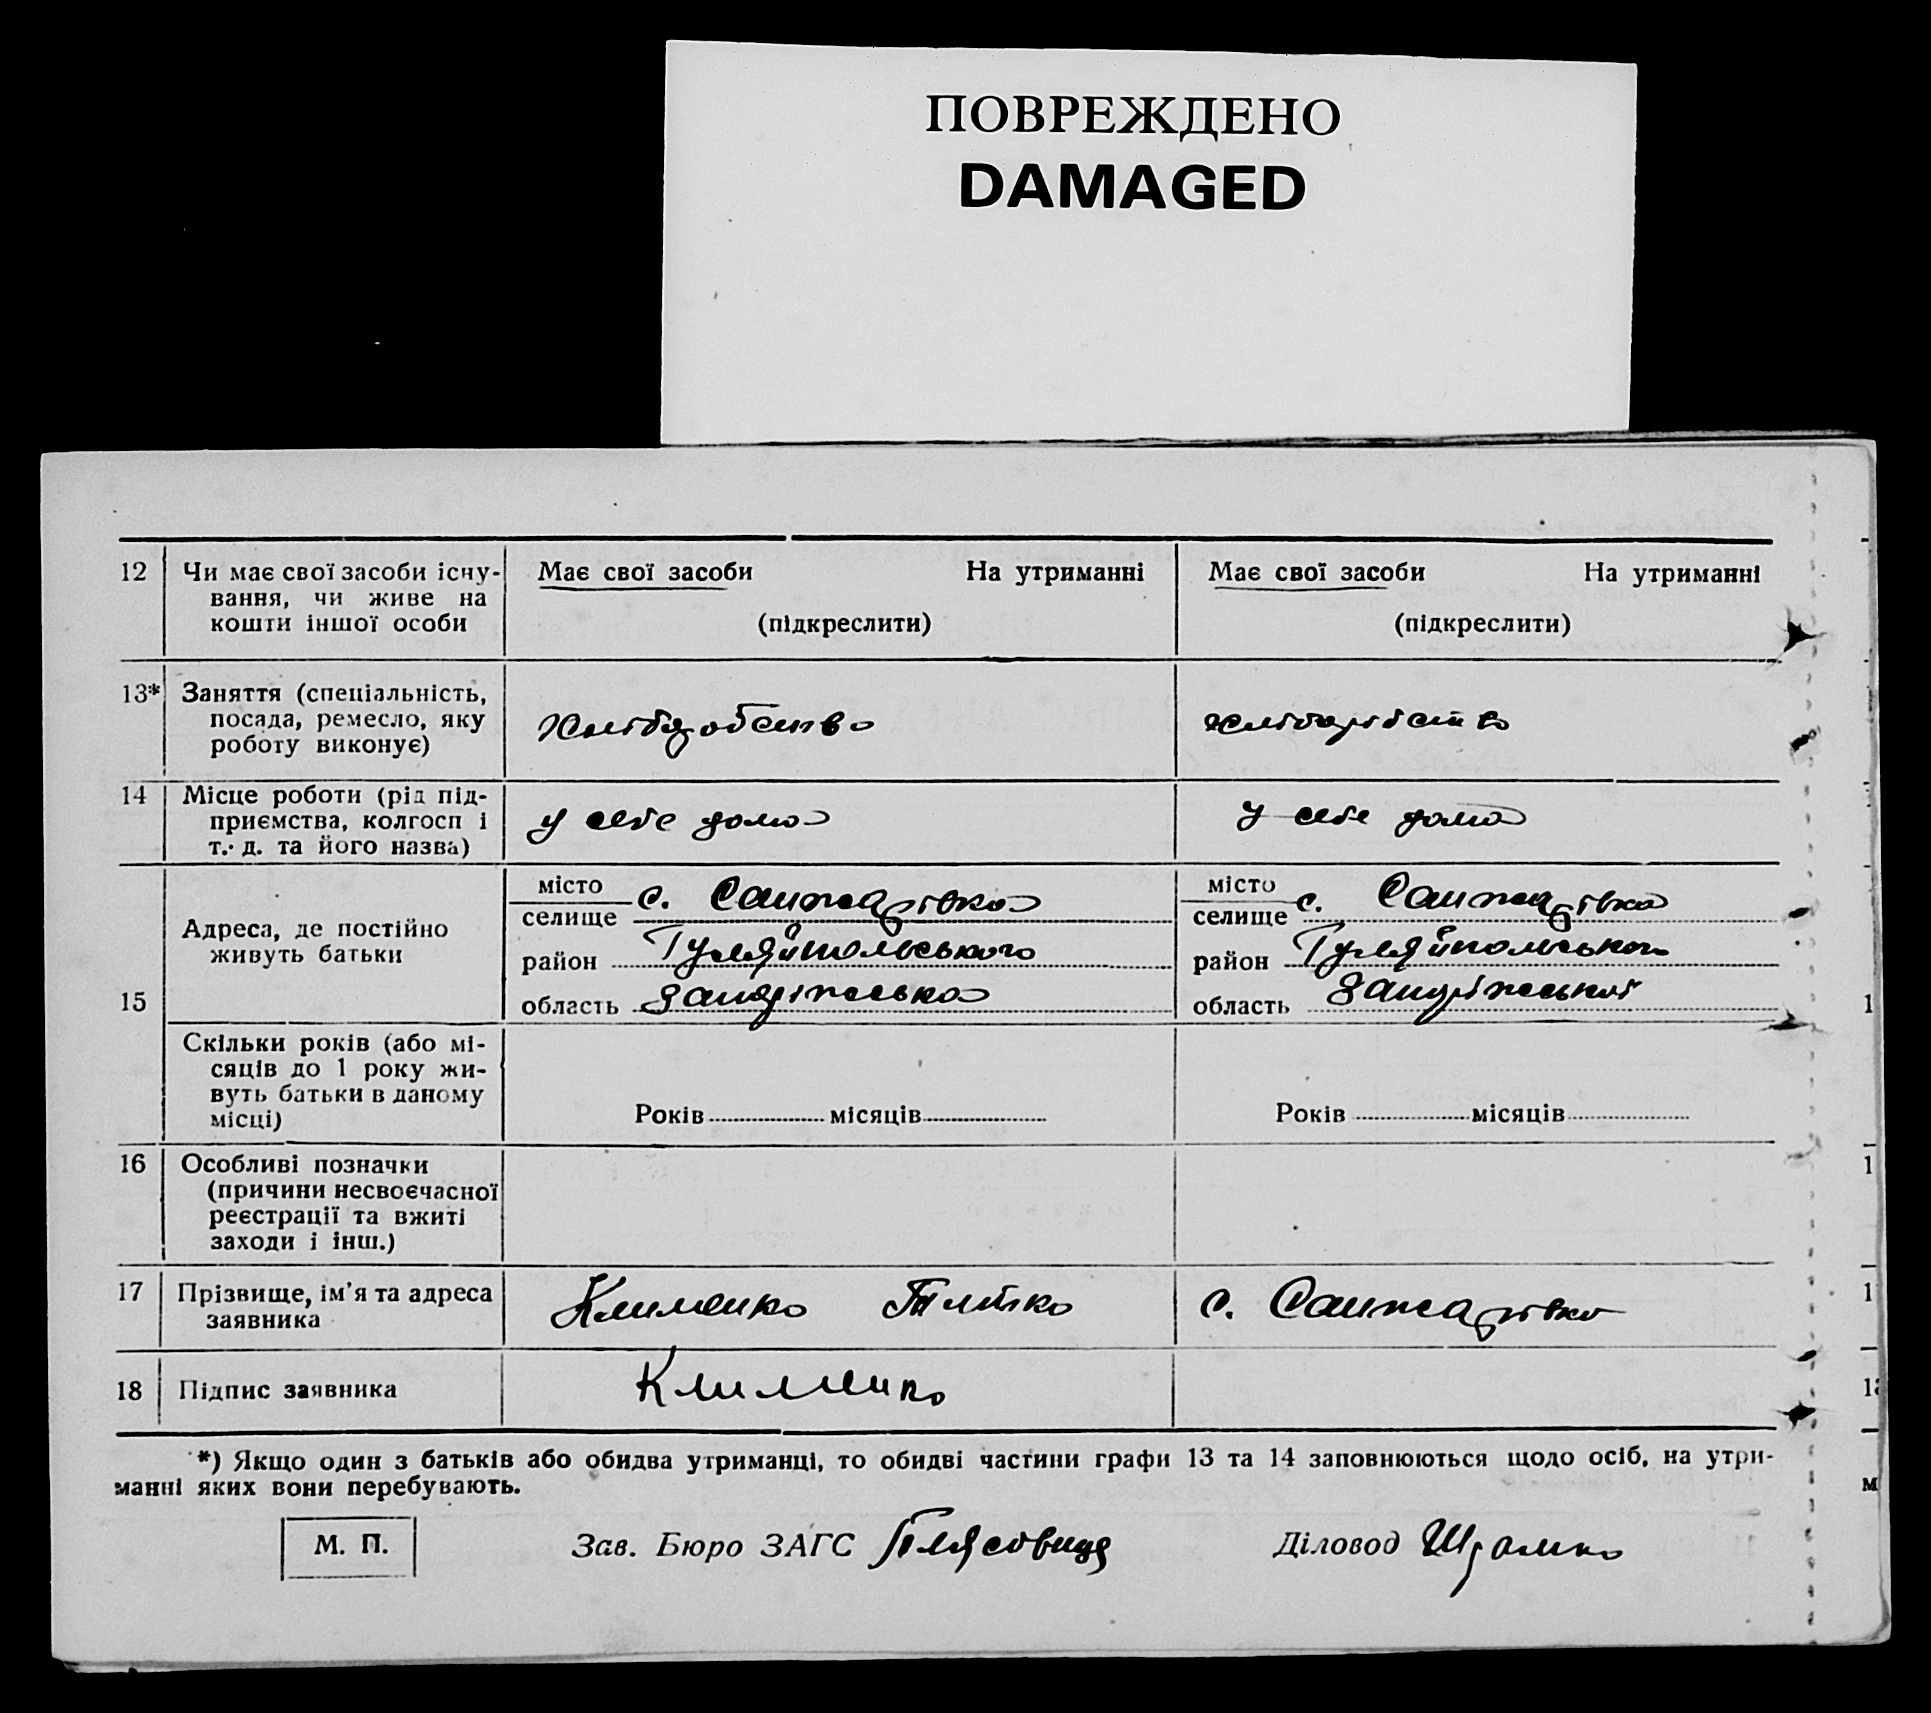 ПОВРЕЖДЕНО
DAMAGED
12 Чи має свої засоби існу- Має свої засоби На утриманні Має свої засоби На утриманні
вання, чи живе на
кошти іншої особи (підкреслити) (підкреслити)
13* Заняття (спеціальність,
посада, ремесло, яку хліборобство хліборобство
роботу виконує)
14 Місце роботи (рід під-
приємства, колгосп і у себе дома у себе дома
т. д. та його назва)
15 Адреса, де постійно живуть батьки
місто селище с. Санжарівка місто селище с. Санжарівка
район Гуляйпольського район Гуляйпольського
область Запоріжська область Запоріжської
Скільки років (або мі-
сяців до 1 року жи-
вуть батьки в даному
місці) Років місяців Років місяців
16 Особливі позначки
(причини несвоєчасної
реєстрації та вжиті
заходи і інш.)
17 Прізвище, ім'я та адреса Клименко с. Санжарівка
заявника
18 Підпис заявника Клименко
*) Якщо один з батьків або обидва утриманці, то обидві частини графи 13 та 14 заповнюються щодо осіб, на утри-
манні яких вони перебувають.
М. П. Зав. Бюро ЗАГС Діловод Шрамко